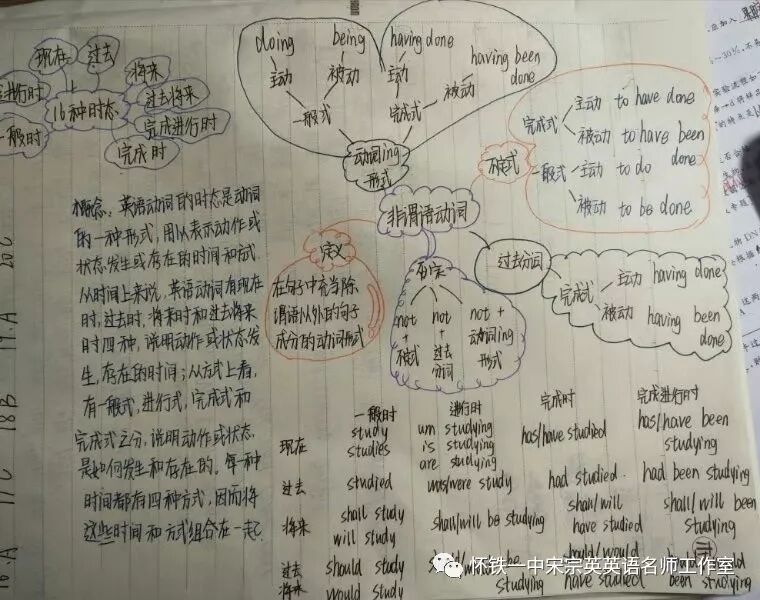 现在
过去
将来
进行时
16种时态
过去将来
一般时
完成进行时
完成时
doing
being
having done
having been
done
主动
被动
主动
被动
一般式
完成式
动词ing
形式
不定式
完成式
主动 to have done
被动 to have been
done
一般式
主动 to do
被动 to be done
非谓语动词
定义
在句子中充当除
谓语以外的句子
成分的动词形式
否定
not
+
不定式
not
+
过去
分词
not +
动词ing
形式
过去分词
完成式
主动 having done
被动 having been
done
概念：英语动词的时态是动词
的一种形式，用以表示动作或
状态发生或存在的时间和方式.
从时间上来说，英语动词有现在
时,过去时，将来时和过去将来
时四种，说明动作或状态发
生，存在的时间；从方式上看,
有一般式，进行式，完成式和
完成式之分，说明动作或状态
是如何发生和存在的。每一种
时间都有四种方式，因而将
这些时间和方式组合在一起
20.C
19.A
18 B
17 C
16.A
一般时 进行时 完成时 完成进行时
现在
study
studies
am studying
is studying
are studying
has/have studied
has/have been
studying
过去 studied was/were study had studied. had been studying
将来
shall study
will study
shall/will be studying
shall/will
have studied
shall/will been
studying
过去
将来
should study
would study
be
studying
should/would
have studied
been studying
怀铁一中宋宗英英语名师工作室